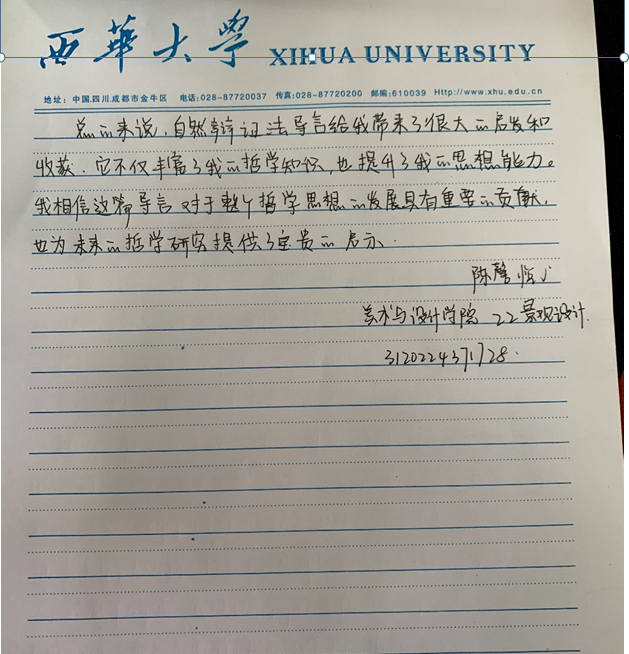 西華大学
XIHUA UNIVERSITY
地址：中国.四川.成都市金牛区 电话:028-87720037 传真:028-87720200 邮编:610039 Http://www.xhu.edu.cn
总的来说，自然辩证法导言给我带来了很大的启发和
收获．它不仅丰富了我的哲学知识，也提升了我的思想能力。
我相信这篇导言对于整个哲学思想的发展具有重要的贡献，
也为未来的哲学研究提供了宝贵的启示．
陈馨
美术与设计学院 22景观设计．
3120224371728．